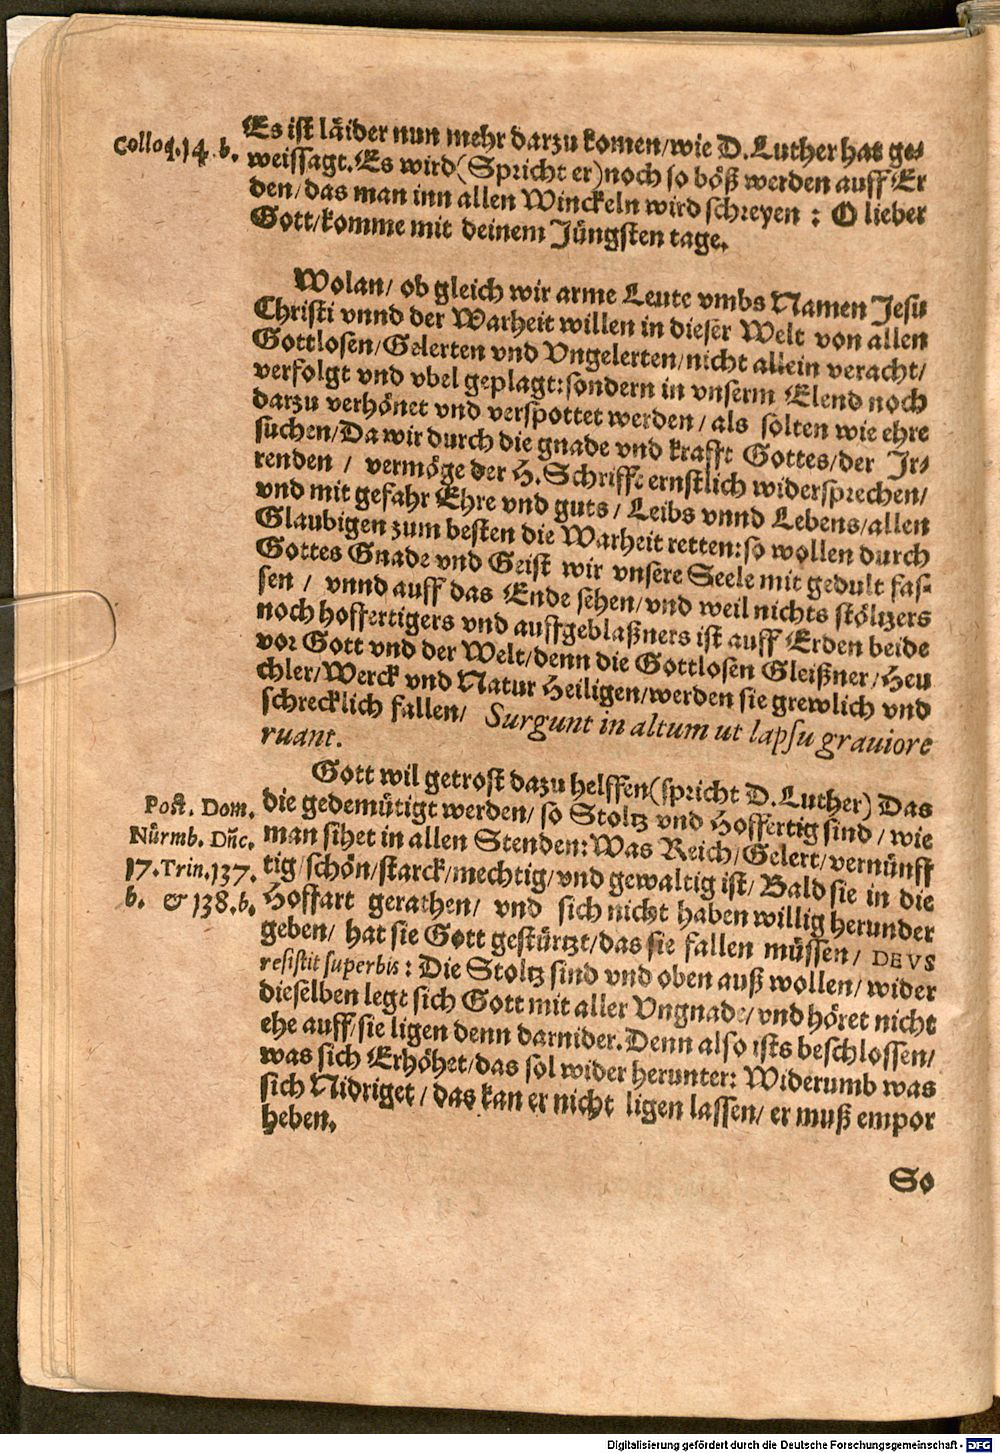 Colloq. 14. b.
Es ist läider nun mehr darzu komen/wie D. Luther hat ge⸗
weissagt. Es wird (Spricht er) noch so böß werden auff Er
den/das man inn allen Winckeln wird schreyen : O lieber
Gott/komme mit deinem Jüngsten tage.
Wolan/ ob gleich wir arme Leute vmbs Namen Jesu
Christi vnnd der Warheit willen in dieser Welt von allen
Gottlosen/Gelerten vnd Vngelerten/nicht allein veracht/
verfolgt vnd vbel geplagt: sondern in vnserm Elend noch
darzu verhönet vnd verspottet werden/ als solten wie ehre
suchen/Da wir durch die gnade vnd krafft Gottes/der Ir⸗
renden / vermöge der H. Schrifft ernstlich widersprechen/
vnd mit gefahr Ehre vnd guts/ Leibs vnnd Lebens/allen
Glaubigen zum besten die Warheit retten: so wollen durch
Gottes Gnade vnd Geist wir vnsere Seele mit gedult fas⸗
sen / vnnd auff das Ende sehen/vnd weil nichts stöltzers
noch hoffertigers vnd auffgeblaßners ist auff Erden beide
vor Gott vnd der Welt/denn die Gottlosen Gleißner/Heu
chler/Werck vnd Natur Heiligen/werden sie grewlich vnd
schrecklich fallen/ Surgunt in altum ut lapsu grauiore
ruant.
Gott wil getrost dazu helffen (spricht D. Luther) Das
Post. Dom.
Nürmb. Dñc.
17. Trin. 137.
b. & 138. b.
die gedemütigt werden/ so Stoltz vnd Hoffertig sind / wie
man sihet in allen Stenden: Was Reich/Gelert/vernünff
tig/schön/starck/mechtig/vnd gewaltig ist/ Bald sie in die
Hoffart gerathen/ vnd sich nicht haben willig herunder
geben/ hat sie Gott gestürtzt/das sie fallen müssen/ DEVS
resistit superbis : Die Stoltz sind vnd oben auß wollen/ wider
dieselben legt sich Gott mit aller Vngnade/ vnd höret nicht
ehe auff/sie ligen denn darnider. Denn also ists beschlossen/
was sich Erhöhet/das sol wider herunter: Widerumb was
sich Nidriget / das kan er nicht ligen lassen/ er muß empor
heben.
So
Digitalisierung gefördert durch die Deutsche Forschungsgemeinschaft - DFG